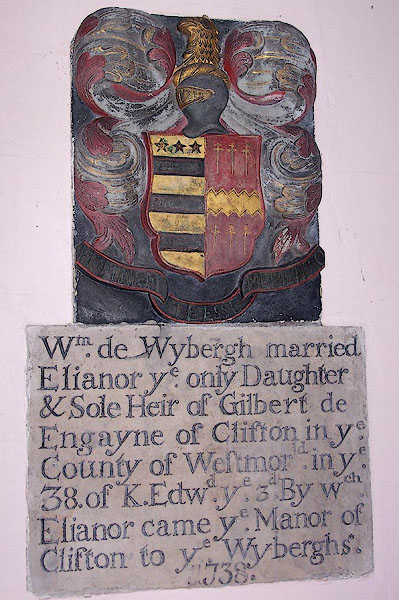 Wm. de Wybergh married
Elianor ye. only Daughter
& Sole Heir of Gilbert de
Engayne of Clifton in ye.
County of Westmorld. in ye.
38. of K. Edwd. ye. 3d. By wch.
Elianor came ye. Manor of
Clifton to ye. Wyberghs.
1738.